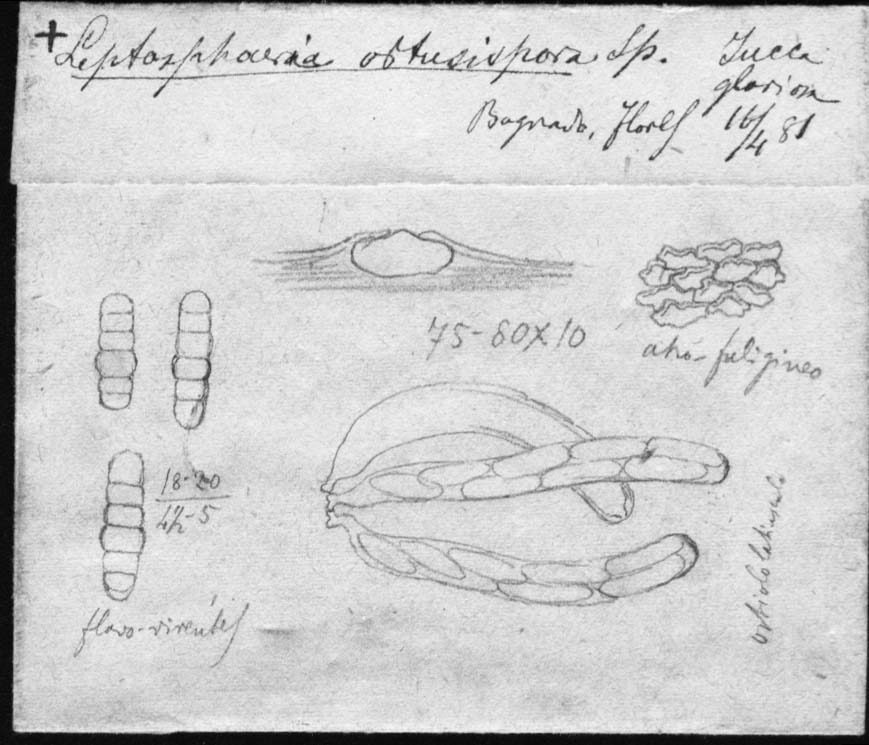 + Leptosphaeria obtusispora Sp. Yucca
gloriosa
16/4 81
75-80×10
atro-fuligineo
18-20
4½-5
flavo-virentes
ostiolo latiusculo